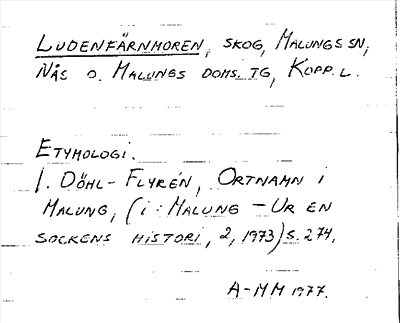 LUDENFÄRNMOREN, SKOG, MALUNGS SN,
NÅS O. MALUNGS DOMS. TG, KOPP. L.
ETYMOLOGI.
I. DÖHL-FLYRÉN, ORTNAMN I
MALUNG, (i: MALUNG - UR EN
SOCKENS HISTORI, 2, 1973) S. 274.
A-MM 1977.